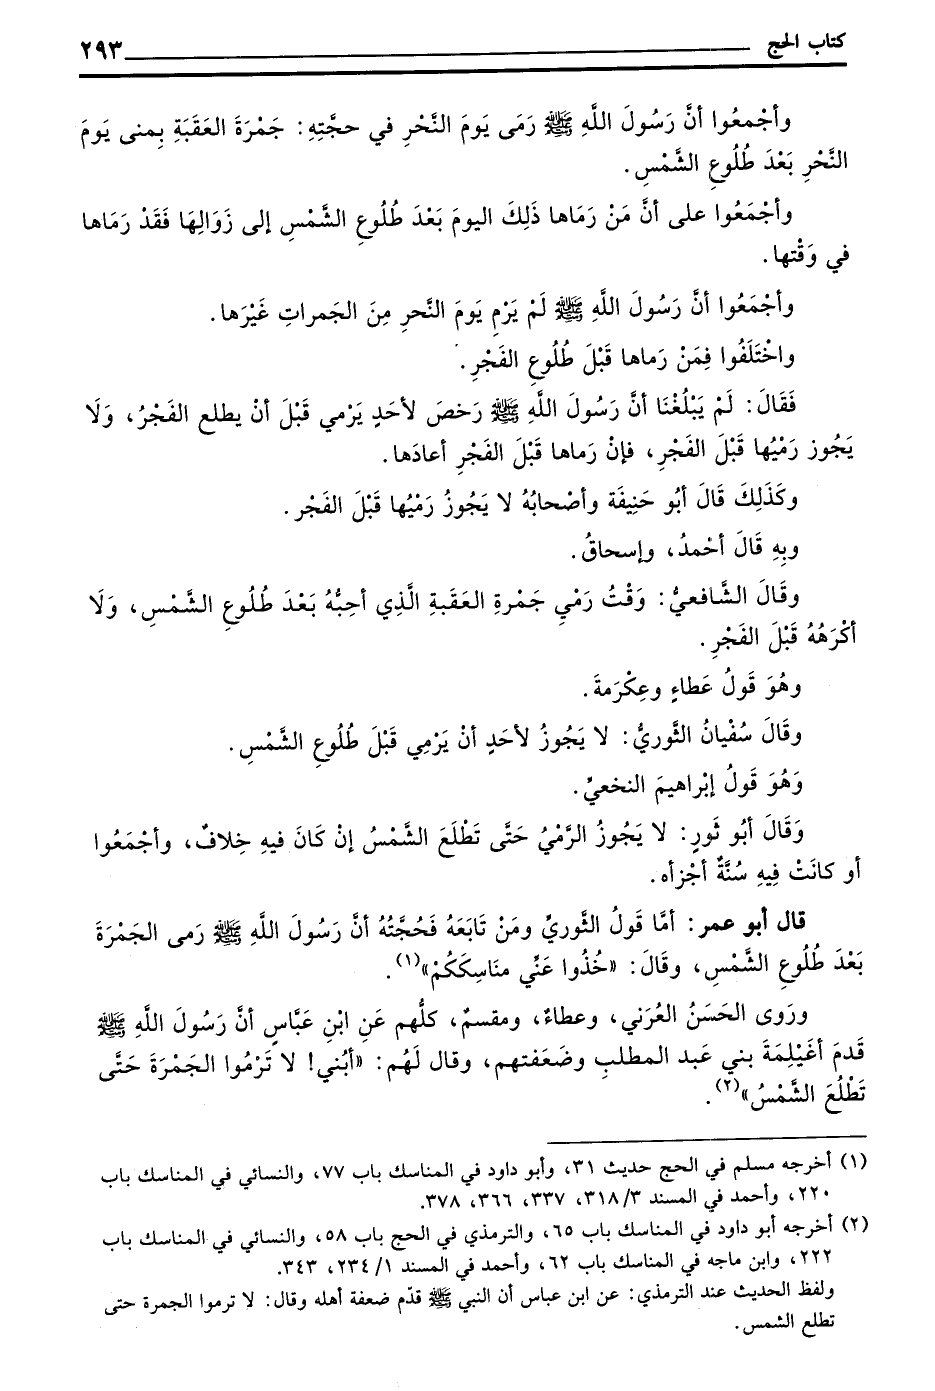 كتاب الحج ٢٩٣
وأجْمعُوا أنَّ رَسُولَ اللَّهِ ﷺ رَمَى يَومَ النَّحْرِ في حجَّتِهِ: جَمْرَةَ العَقَبَةِ بِمنى يَومَ
النَّحْرِ بَعْدَ طُلُوعِ الشَّمْسِ.
وأجْمَعُوا على أنَّ مَنْ رَمَاها ذَلِكَ اليومَ بَعْدَ طُلُوعِ الشَّمْسِ إلى زَوَالِهَا فَقَدْ رَمَاها
في وَقْتها.
وأجْمَعُوا أنَّ رَسُولَ اللَّهِ ﷺ لَمْ يَرْمِ يَومَ النَّحرِ مِنَ الجَمراتِ غَيْرَها.
واخْتَلَفُوا فِمَنْ رَماها قَبْلَ طُلُوعِ الفَجْرِ.
فَقَالَ: لَمْ يَبْلُغْنَا أنَّ رَسُولَ اللَّهِ ﷺ رَخصَ لأحَدٍ يَرْمي قَبْلَ أنْ يطلع الفَجْرُ، وَلَا
يَجُوز رَمْيُها قَبْلَ الفَجْرِ، فإنْ رَماها قَبْلَ الفَجْرِ أعادَها.
وكَذَلِكَ قَالَ أبُو حَنِيفَة وأصْحابُهُ لا يَجُوزُ رَمْيُها قَبْلَ الفَجْر.
وبِهِ قَالَ أحْمدُ، وإسحاقُ.
وقَالَ الشَّافعيُّ: وَقْتُ رَمْي جَمْرةِ العَقَبةِ الَّذِي أحِبُّهُ بَعْدَ طُلُوعِ الشَّمْسِ، وَلَا
أكْرَهُهُ قَبْلَ الفَجْرِ.
وهُوَ قَولُ عَطاءٍ وعِكْرَمةَ.
وقَالَ سُفْيانُ الثَّوريُّ: لا يَجُوزُ لأحَدٍ أنْ يَرْمِي قَبْلَ طُلُوعِ الشَّمْسِ.
وَهُوَ قَولُ إبْراهيمَ النخعيِّ.
وَقَالَ أبُو ثَورٍ: لا يَجُوزُ الرَّمْيُ حَتَّى تَطْلَعَ الشَّمْسُ إنْ كَانَ فيهِ خِلافٌ، وأجْمَعُوا
أو كانَتْ فِيهِ سُنَّةٌ أجْزأه.
قال أبو عمر: أمَّا قَولُ الثَّوريِّ ومَنْ تَابَعَهُ فَحُجَّتُهُ أنَّ رَسُولَ اللَّهِ ﷺ رَمى الجَمْرَةَ
بَعْدَ طُلُوعِ الشَّمْسِ، وقَالَ: «خُذُوا عَنِّي منَاسِكَكُمْ»(١).
ورَوى الحَسَنُ العُرَني، وعطاءٌ، ومقسمٌ، كلُّهم عَنِ ابْنِ عَبَّاسٍ أنَّ رَسُولَ اللَّهِ ﷺ
قَدمَ أغَيْلِمَةَ بني عَبد المطلبِ وضَعَفتهم، وقال لَهُم: «أبُني! لا تَرْمُوا الجَمْرَةَ حَتَّى
تَطْلُعَ الشَّمْسُ»(٢).
(١) أخرجه مسلم في الحج حديث ٣١، وأبو داود في المناسك باب ٧٧، والنسائي في المناسك باب
٢٢٠، وأحمد في المسند ٣١٨/٣، ٣٣٧، ٣٦٦، ٣٧٨.
(٢) أخرجه أبو داود في المناسك باب ٦٥، والترمذي في الحج باب ٥٨، والنسائي في المناسك باب
٢٢٢، وابن ماجه في المناسك باب ٦٢، وأحمد في المسند ٢٣٤/١، ٣٤٣.
ولفظ الحديث عند الترمذي: عن ابن عباس أن النبي ﷺ قدّم ضعفة أهله وقال: لا ترموا الجمرة حتى
تطلع الشمس.